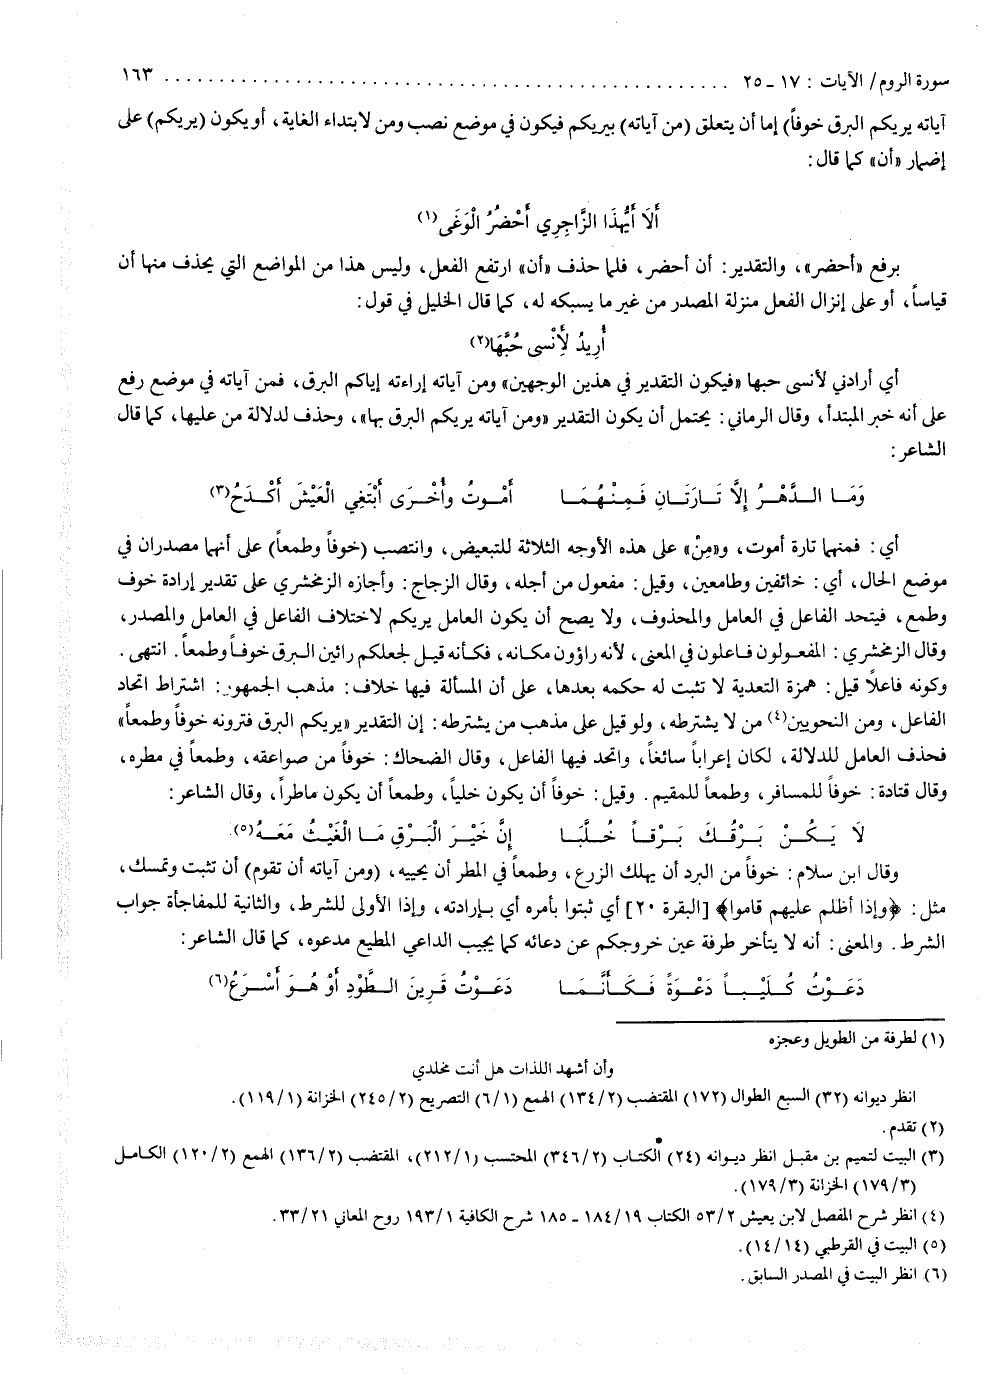 سورة الروم/ الآيات : ١٧ ـ ٢٥ . . . . . . . . . . . . . . . . . . . . . . . . . . . . . . . . . . . . . . . . ١٦٣
آياته يريكم البرق خوفاً) إما أن يتعلق (من آياته) بيريكم فيكون في موضع نصب ومن لابتداء الغاية، أو يكون (يريكم) على
إضمار «أن» كما قال:
أَلَا أَيُّهَذَا الزَّاجِرِي أَحْضُرُ الْوَغَى(١)
برفع «أحضر»، والتقدير: أن أحضر، فلما حذف «أن» ارتفع الفعل، وليس هذا من المواضع التي يحذف منها أن
قياساً، أو على إنزال الفعل منزلة المصدر من غير ما يسبكه له، كما قال الخليل في قول:
أُرِيدُ لِأَنْسى حُبَّهَا(٢)
أي أرادني لأنسى حبها «فيكون التقدير في هذين الوجهين» ومن آياته إراءته إياكم البرق، فمن آياته في موضع رفع
على أنه خبر المبتدأ، وقال الرماني: يحتمل أن يكون التقدير «ومن آياته يريكم البرق بها»، وحذف لدلالة من عليها، كما قال
الشاعر:
وَمَا الـدَّهْـرُ إِلَّا تَـارَتَـانِ فَـمِنْـهُـمَـا أَمُـوتُ وأُخْـرَى أَبْتَغِي الْعَيْشَ أَكْـدَحُ(٣)
أي: فمنهما تارة أموت، و«مِنْ» على هذه الأوجه الثلاثة للتبعيض، وانتصب (خوفاً وطمعاً) على أنهما مصدران في
موضع الحال، أي: خائفين وطامعين، وقيل: مفعول من أجله، وقال الزجاج: وأجازه الزمخشري على تقدير إرادة خوف
وطمع، فيتحد الفاعل في العامل والمحذوف، ولا يصح أن يكون العامل يريكم لاختلاف الفاعل في العامل والمصدر،
وقال الزمخشري: المفعولون فاعلون في المعنى، لأنه راؤون مكانه، فكأنه قيل لجعلكم رائين البرق خوفاً وطمعاً. انتهى.
وكونه فاعلاً قيل: همزة التعدية لا تثبت له حكمه بعدها، على أن المسألة فيها خلاف: مذهب الجمهور: اشتراط اتحاد
الفاعل، ومن النحويين(٤) من لا يشترطه، ولو قيل على مذهب من يشترطه: إن التقدير «يريكم البرق فترونه خوفاً وطمعاً»
فحذف العامل للدلالة، لكان إعراباً سائغاً، واتحد فيها الفاعل، وقال الضحاك: خوفاً من صواعقه، وطمعاً في مطره،
وقال قتادة: خوفاً للمسافر، وطمعاً للمقيم. وقيل: خوفاً أن يكون خلياً، وطمعاً أن يكون ماطراً، وقال الشاعر:
لَا يَـكُـنْ بَـرْقُـكَ بَـرْقـاً خُـلَّبـَا إِنَّ خَيْـرَ الْبَـرْقِ مَـا الْغَيْـثُ مَعَـهُ(٥).
وقال ابن سلام: خوفاً من البرد أن يهلك الزرع، وطمعاً في المطر أن يحييه، (ومن آياته أن تقوم) أن تثبت وتمسك،
مثل: ﴿وإذا أظلم عليهم قاموا﴾ [البقرة ٢٠] أي ثبتوا بأمره أي بإرادته، وإذا الأولى للشرط، والثانية للمفاجأة جواب
الشرط. والمعنى: أنه لا يتأخر طرفة عين خروجكم عن دعائه كما يجيب الداعي المطيع مدعوه، كما قال الشاعر:
دَعَـوْتُ كُـلَيْـبـاً دَعْـوَةً فَـكَـأَنَّـمَـا دَعَـوْتُ قَـرِينَ الـطَّوْدِ أَوْ هُـوَ أَسْـرَعُ(٦)
(١) لطرفة من الطويل وعجزه
وأن أشهد اللذات هل أنت مخلدي
انظر ديوانه (٣٢) السبع الطوال (١٧٢) المقتضب (١٣٤/٢) الهمع (٦/١) التصريح (٢٤٥/٢) الخزانة (١١٩/١).
(٢) تقدم.
(٣) البيت لتميم بن مقبل انظر ديوانه (٢٤) الكتاب (٣٤٦/٢) المحتسب (٢١٢/١)، المقتضب (١٣٦/٢) الهمع (١٢٠/٢) الكامل
(١٧٩/٣) الخزانة (١٧٩/٣).
(٤) انظر شرح المفصل لابن يعيش ٥٣/٢ الكتاب ١٨٤/١٩ ـ ١٨٥ شرح الكافية ١٩٣/١ روح المعاني ٣٣/٢١.
(٥) البيت في القرطبي (١٤/١٤).
(٦) انظر البيت في المصدر السابق.